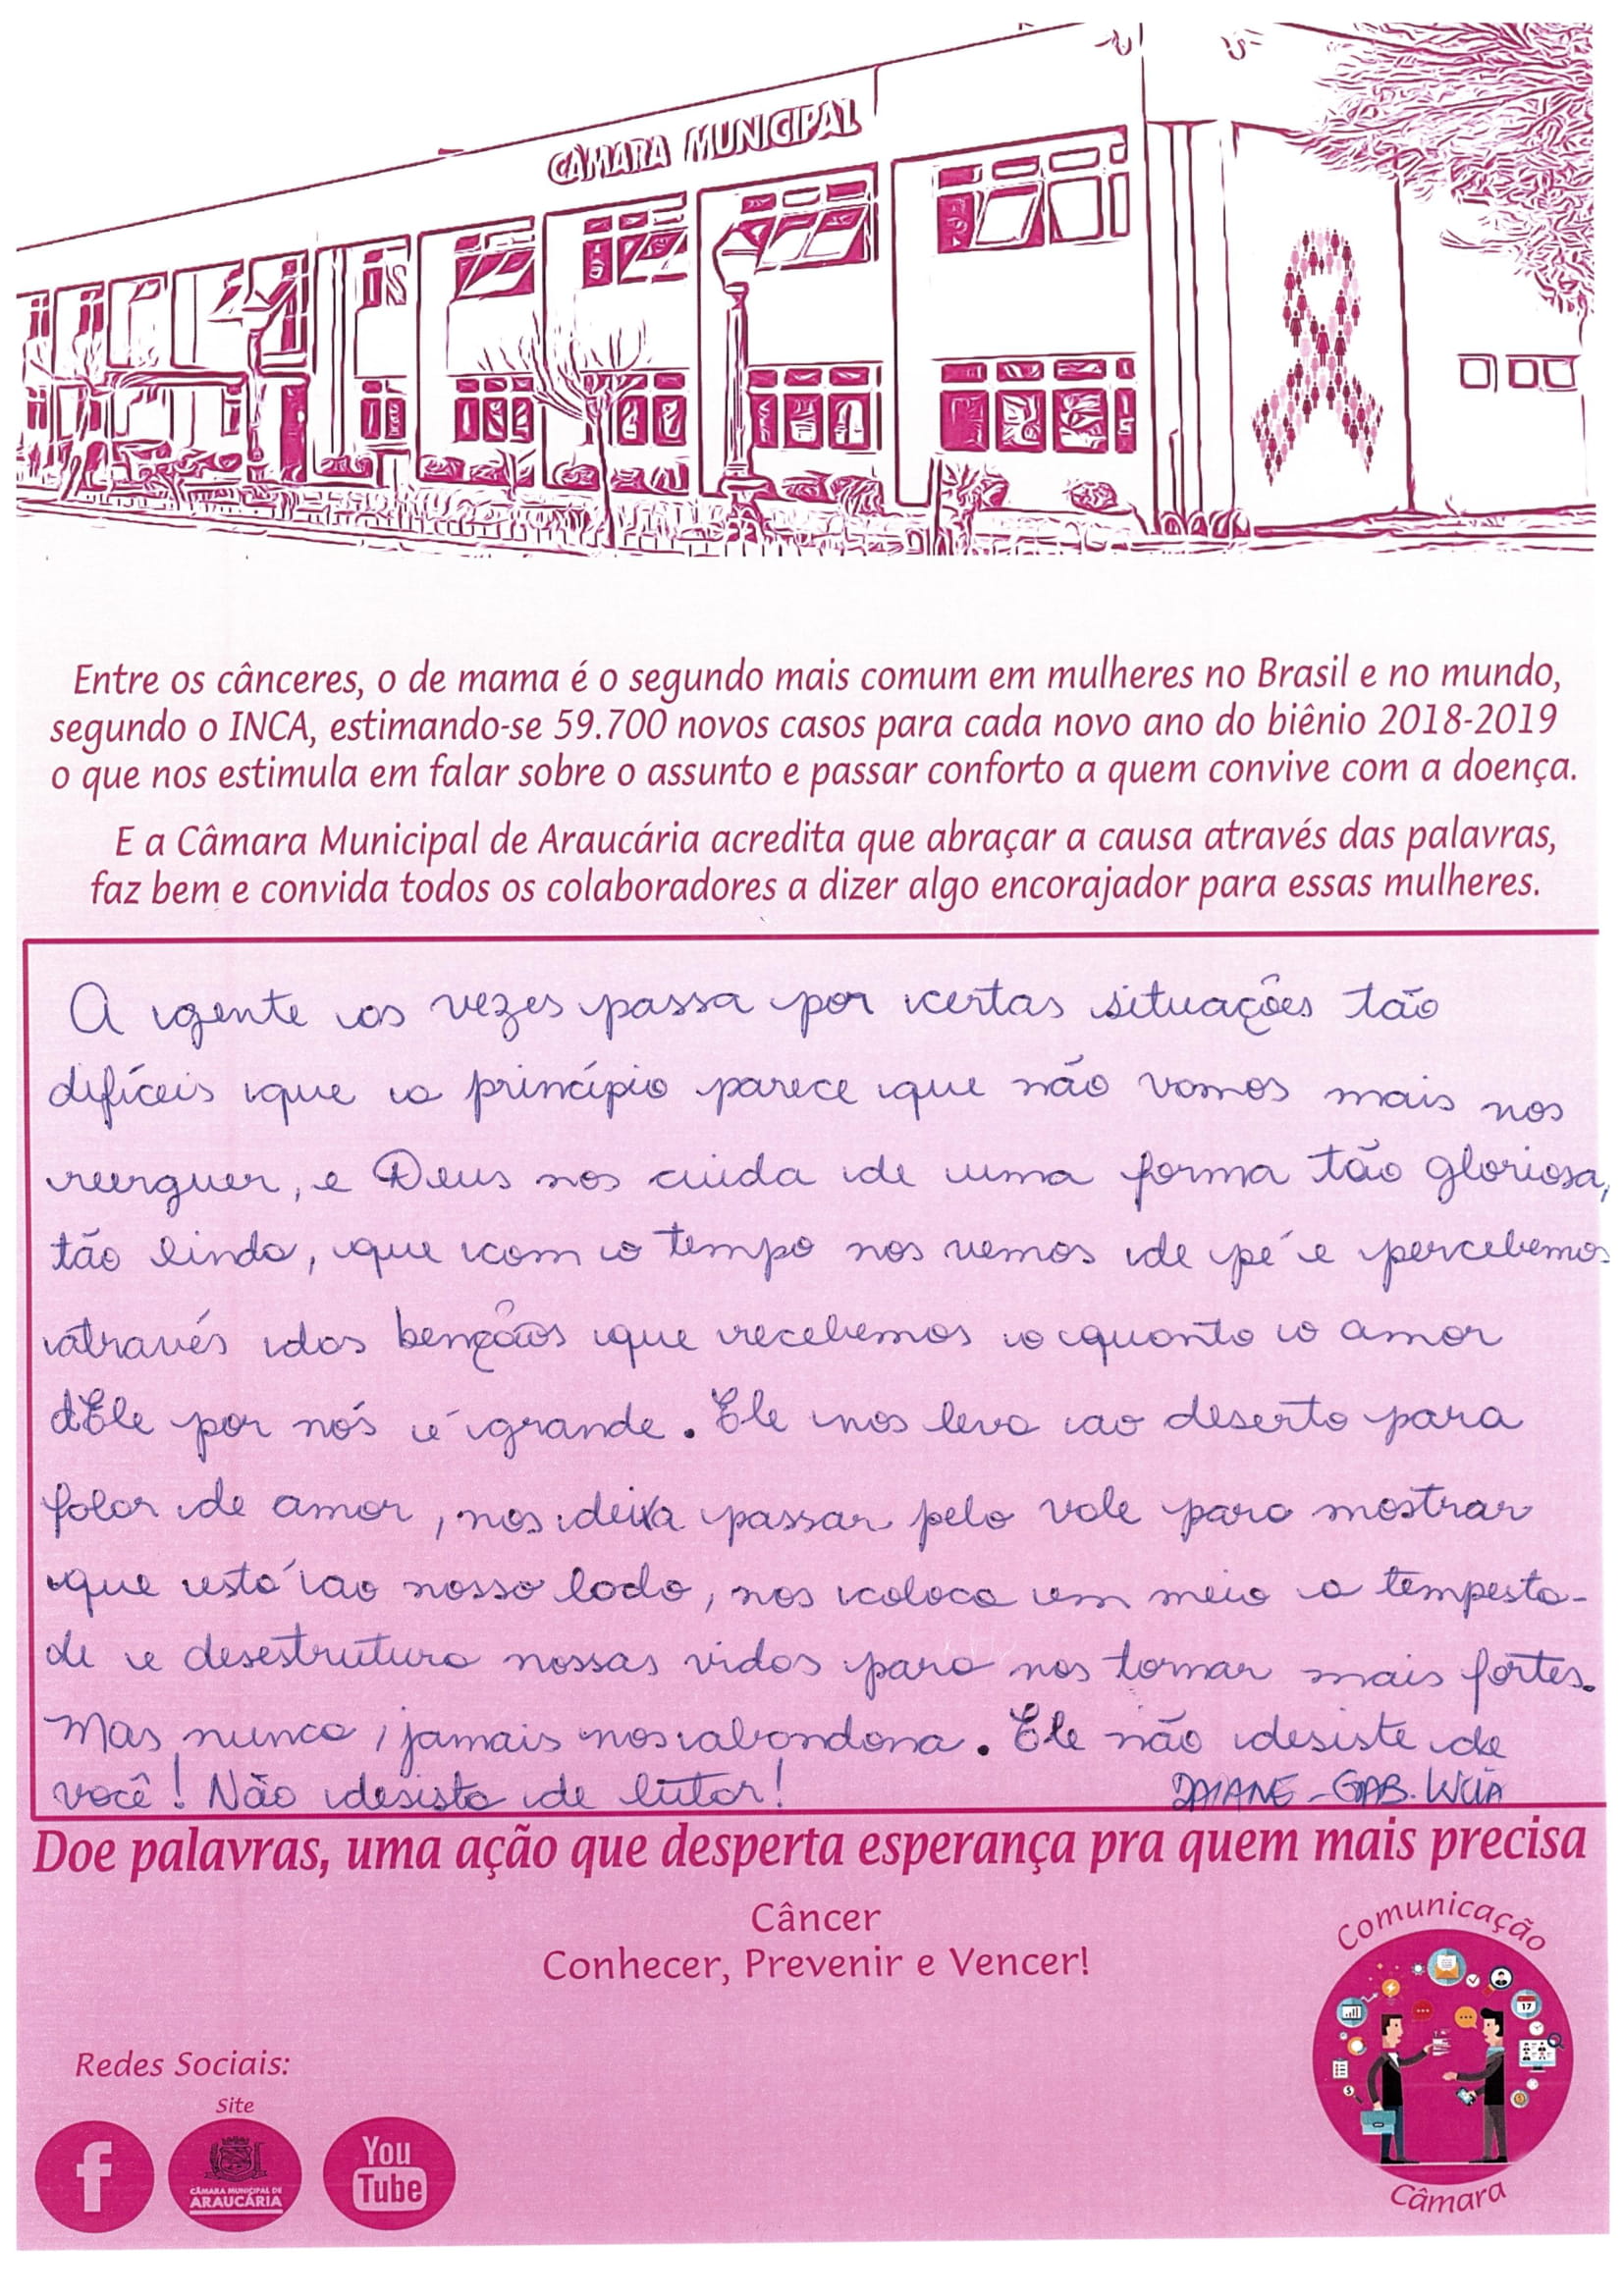 CÂMARA MUNICIPAL
Entre os cânceres, o de mama é o segundo mais comum em mulheres no Brasil e no mundo,
segundo o INCA, estimando-se 59.700 novos casos para cada novo ano do biênio 2018-2019
o que nos estimula em falar sobre o assunto e passar conforto a quem convive com a doença.
E a Câmara Municipal de Araucária acredita que abraçar a causa através das palavras,
faz bem e convida todos os colaboradores a dizer algo encorajador para essas mulheres.
A gente as vezes passa por certas situações tão
difíceis que a princípio parece que não vamos mais nos
reerguer, e Deus nos cuida de uma forma tão gloriosa,
tão linda, que com o tempo nos vemos de pé e percebemos
através das bençãos que recebemos o quanto o amor
dEle por nós é grande. Ele nos leva ao deserto para
falar de amor, nos deixa passar pelo vale para mostrar
que está ao nosso lado, nos coloca em meio a tempesta-
de e desestrutura nossas vidas para nos tornar mais fortes.
Mas nunca, jamais nos abandona. Ele não desiste de
você! Não desista de lutar!
DAIANE - GAB. LÚCIA
Doe palavras, uma ação que desperta esperança pra quem mais precisa
Câncer
Conhecer, Prevenir e Vencer!
Comunicação
17
Câmara
Redes Sociais:
Site
f
CÂMARA MUNICIPAL DE
ARAUCÁRIA
You
Tube